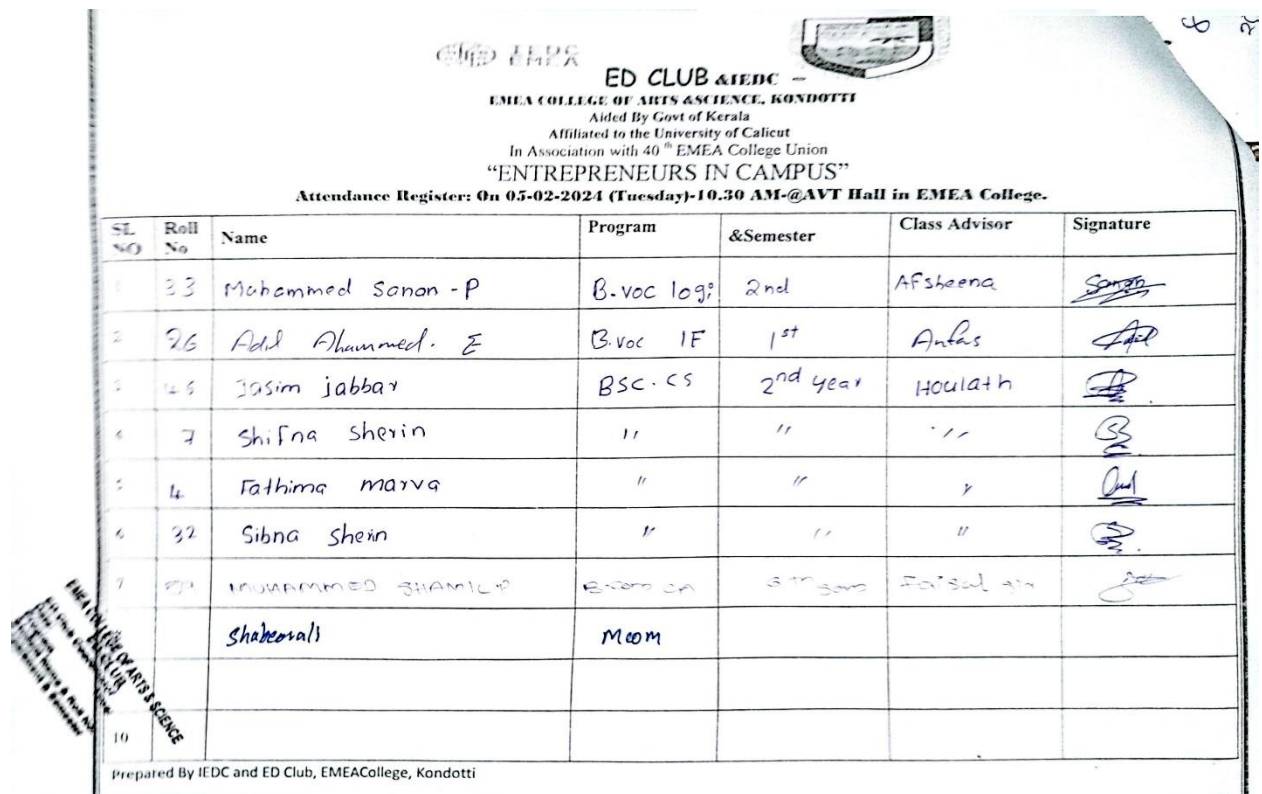 IEDC
EMEA
ED CLUB &IEDC -
EMEA COLLEGE OF ARTS &SCIENCE, KONDOTTI
Aided By Govt of Kerala
Affiliated to the University of Calicut
In Association with 40 th EMEA College Union
“ENTREPRENEURS IN CAMPUS”
Attendance Register: On 05-02-2024 (Tuesday)-10.30 AM-@AVT Hall in EMEA College.
SL NO Roll No Name Program &Semester Class Advisor Signature
1 33 Mohammed Sanan - P B.voc logi 2nd AFsheena Sanan
2 26 Adil Ahammed. E B.voc IF 1st Anfas Adil
3 45 Jasim jabbar BSC. CS 2nd year Houlath
4 7 Shifna Sherin " " "
5 4 Fathima marva " " "
6 32 Sibna Sherin " " "
7 MUHAMMED SHAMIL P B.com CA 5th sem Faisal sir
Shabeerali Mcom
10
EMEA COLLEGE OF ARTS & SCIENCE
ED CLUB
Prepared By IEDC and ED Club, EMEACollege, Kondotti